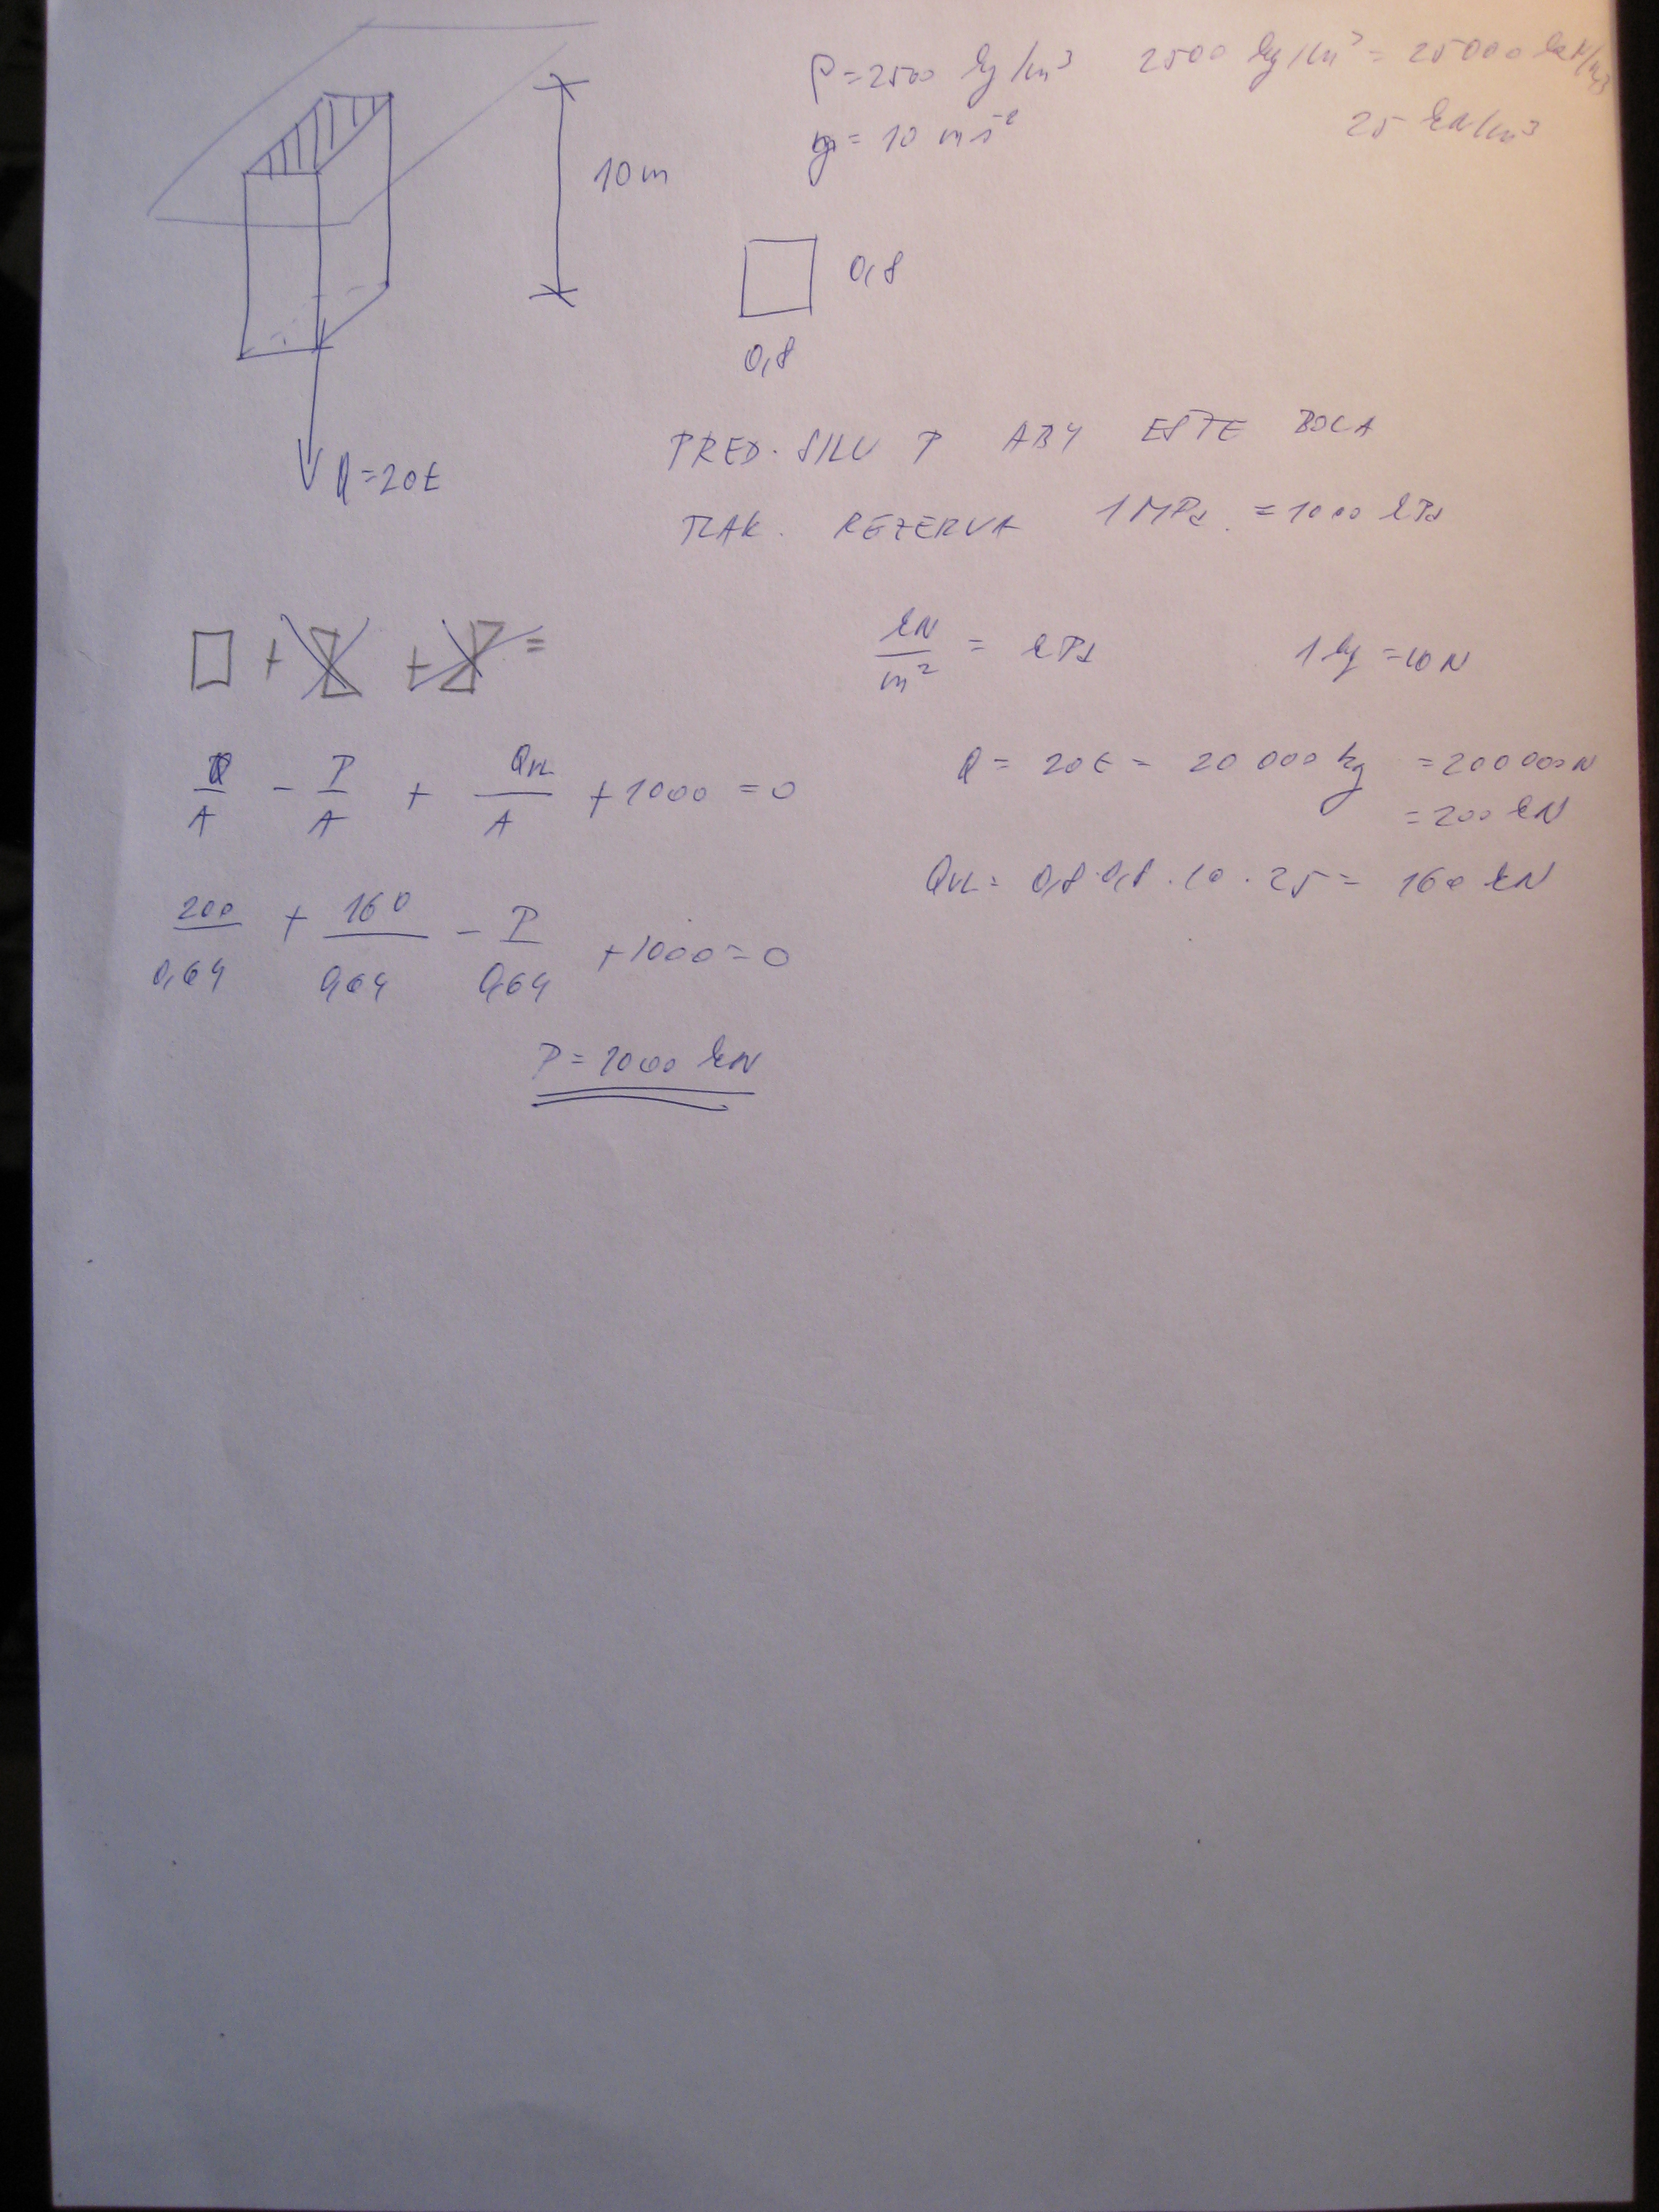 ρ = 2500 kg/m³   2500 kg/m³ = 25000 N/m³
g = 10 ms⁻²   25 kN/m³
10 m
0,8
0,8
Q = 20t
PRED. SILU P ABY EŠTE BOLA
TLAK. REZERVA 1 MPa = 1000 kPa
+ + =
kN/m² = kPa   1 kg = 10 N
Q/A - P/A + Qvl/A + 1000 = 0
Q = 20t = 20 000 kg = 200 000 N
= 200 kN
Qvl = 0,8 · 0,8 · 10 · 25 = 160 kN
200/0,64 + 160/0,64 - P/0,64 + 1000 = 0
P = 1000 kN